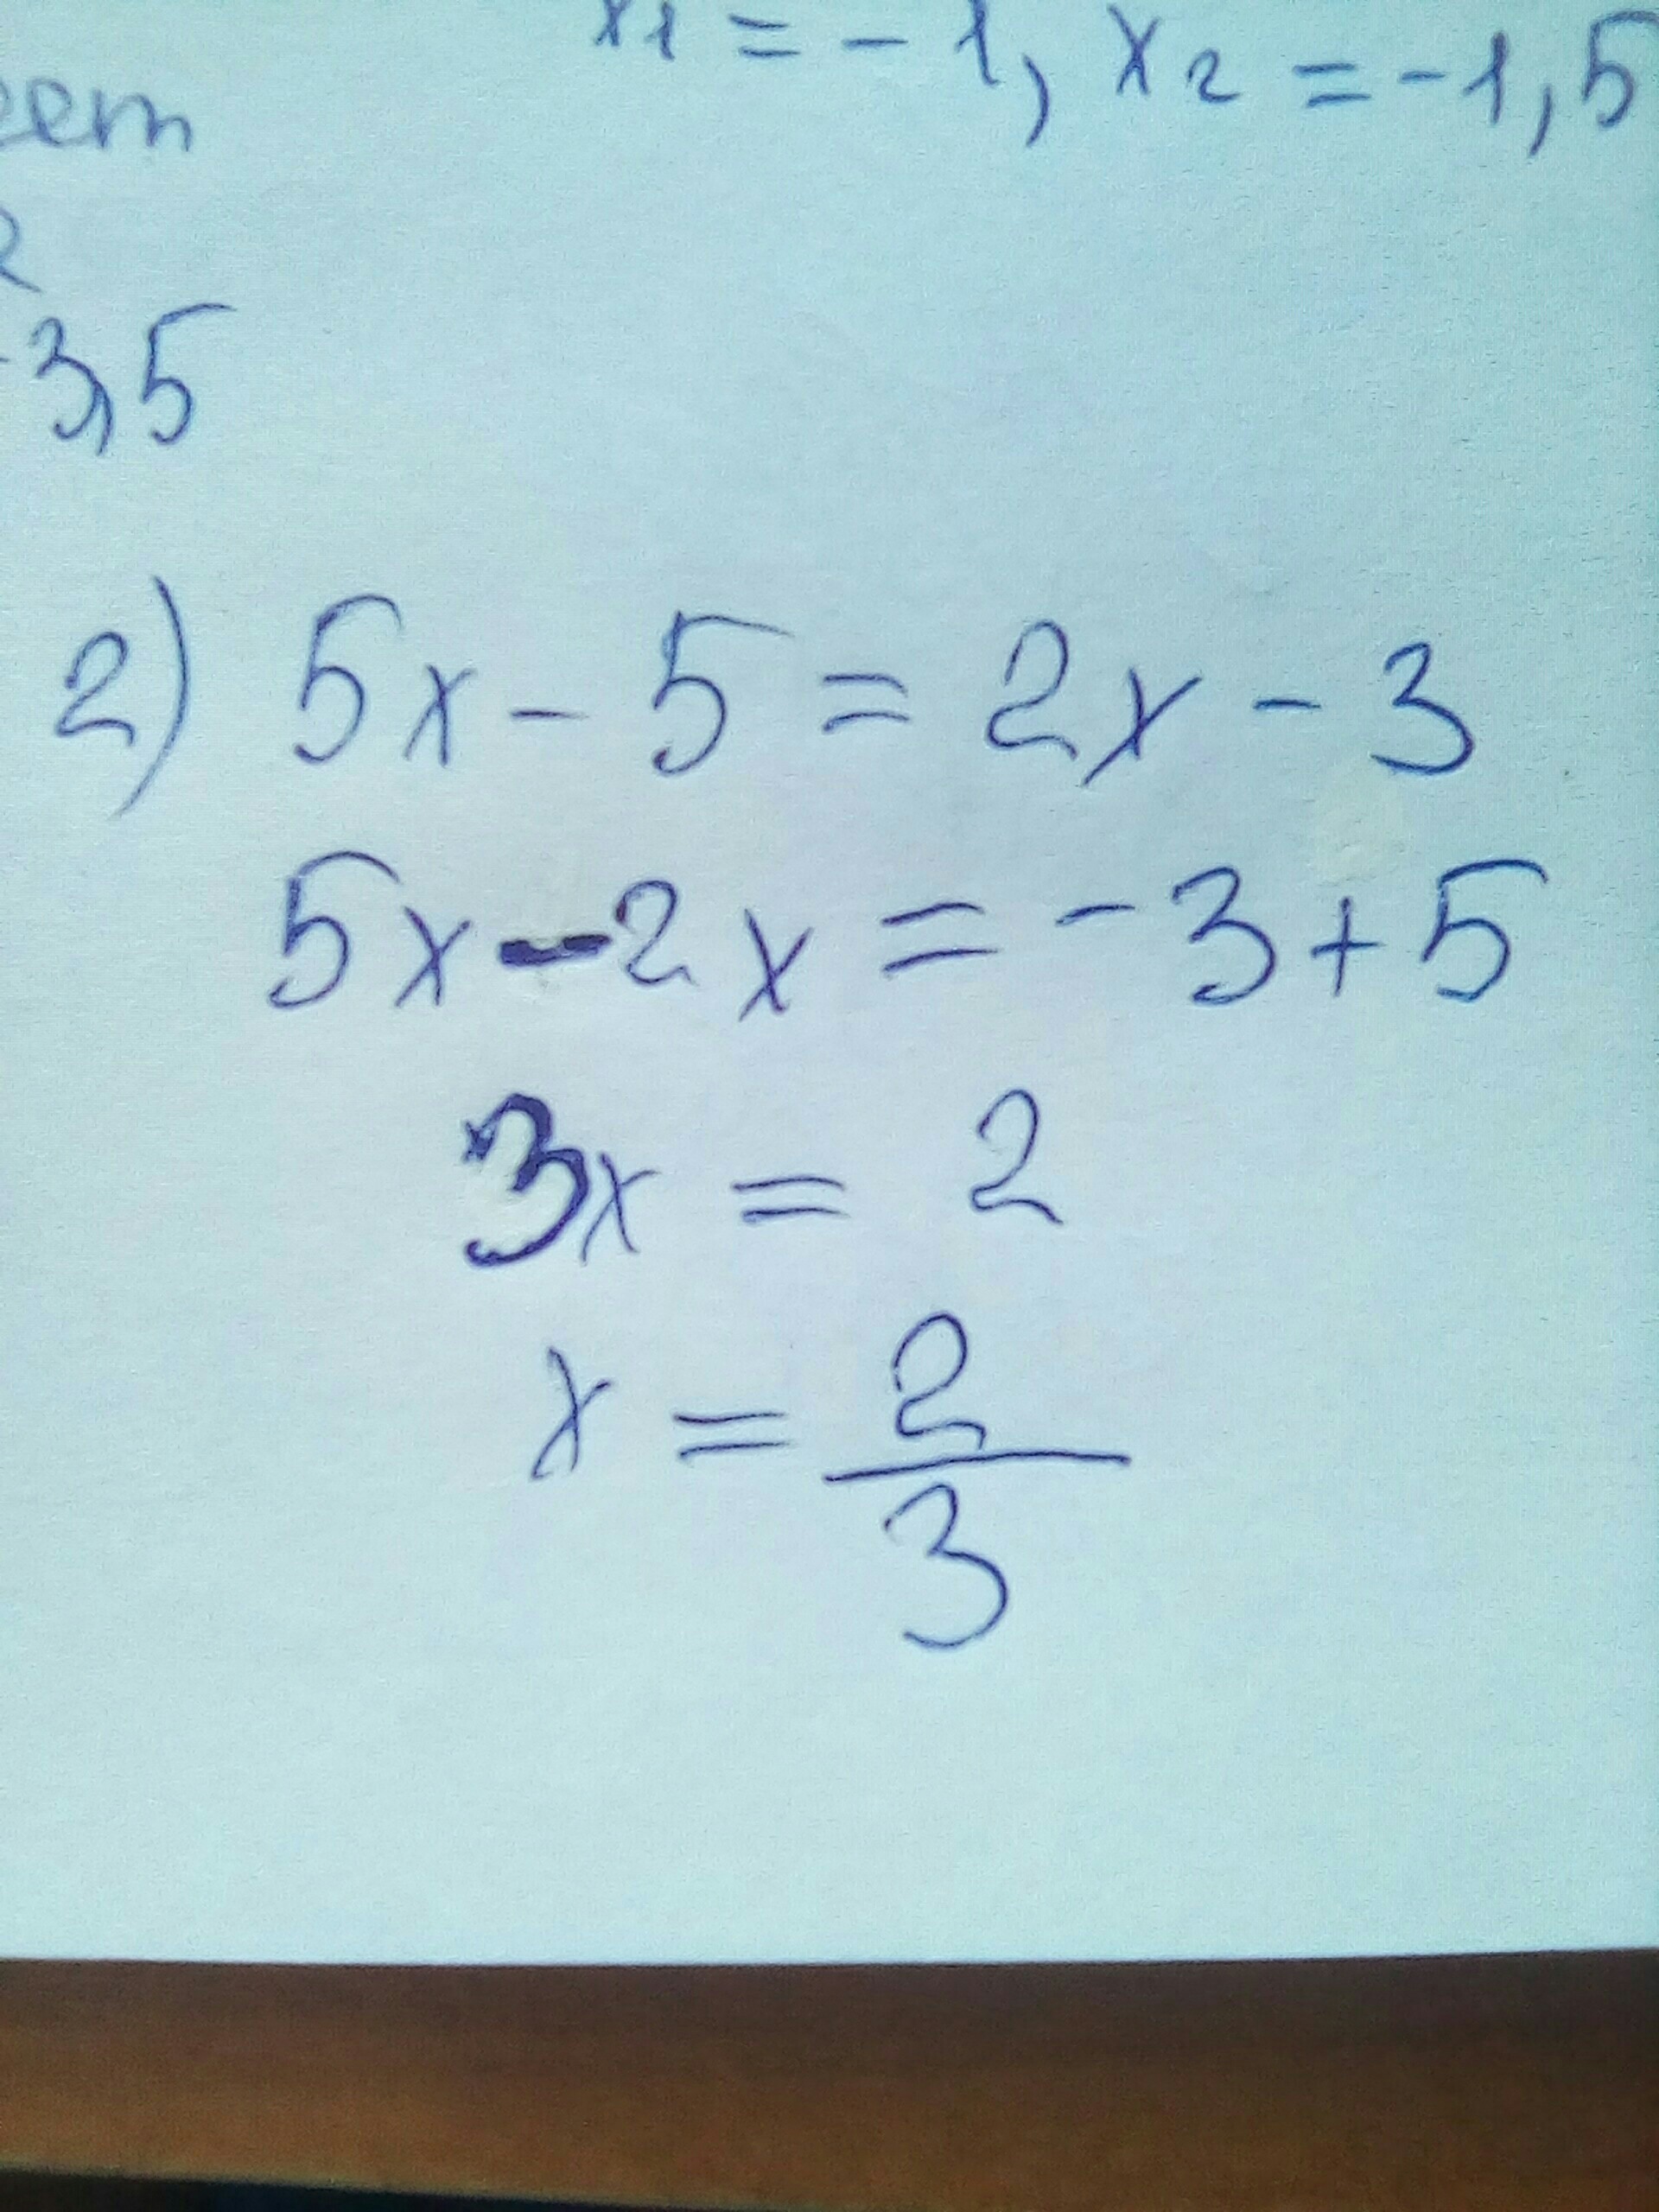 x1 = - 1, x2 = -1,5
2
3,5
2) 5x - 5 = 2x - 3
5x - 2x = - 3 + 5
3x = 2
x = 2/3